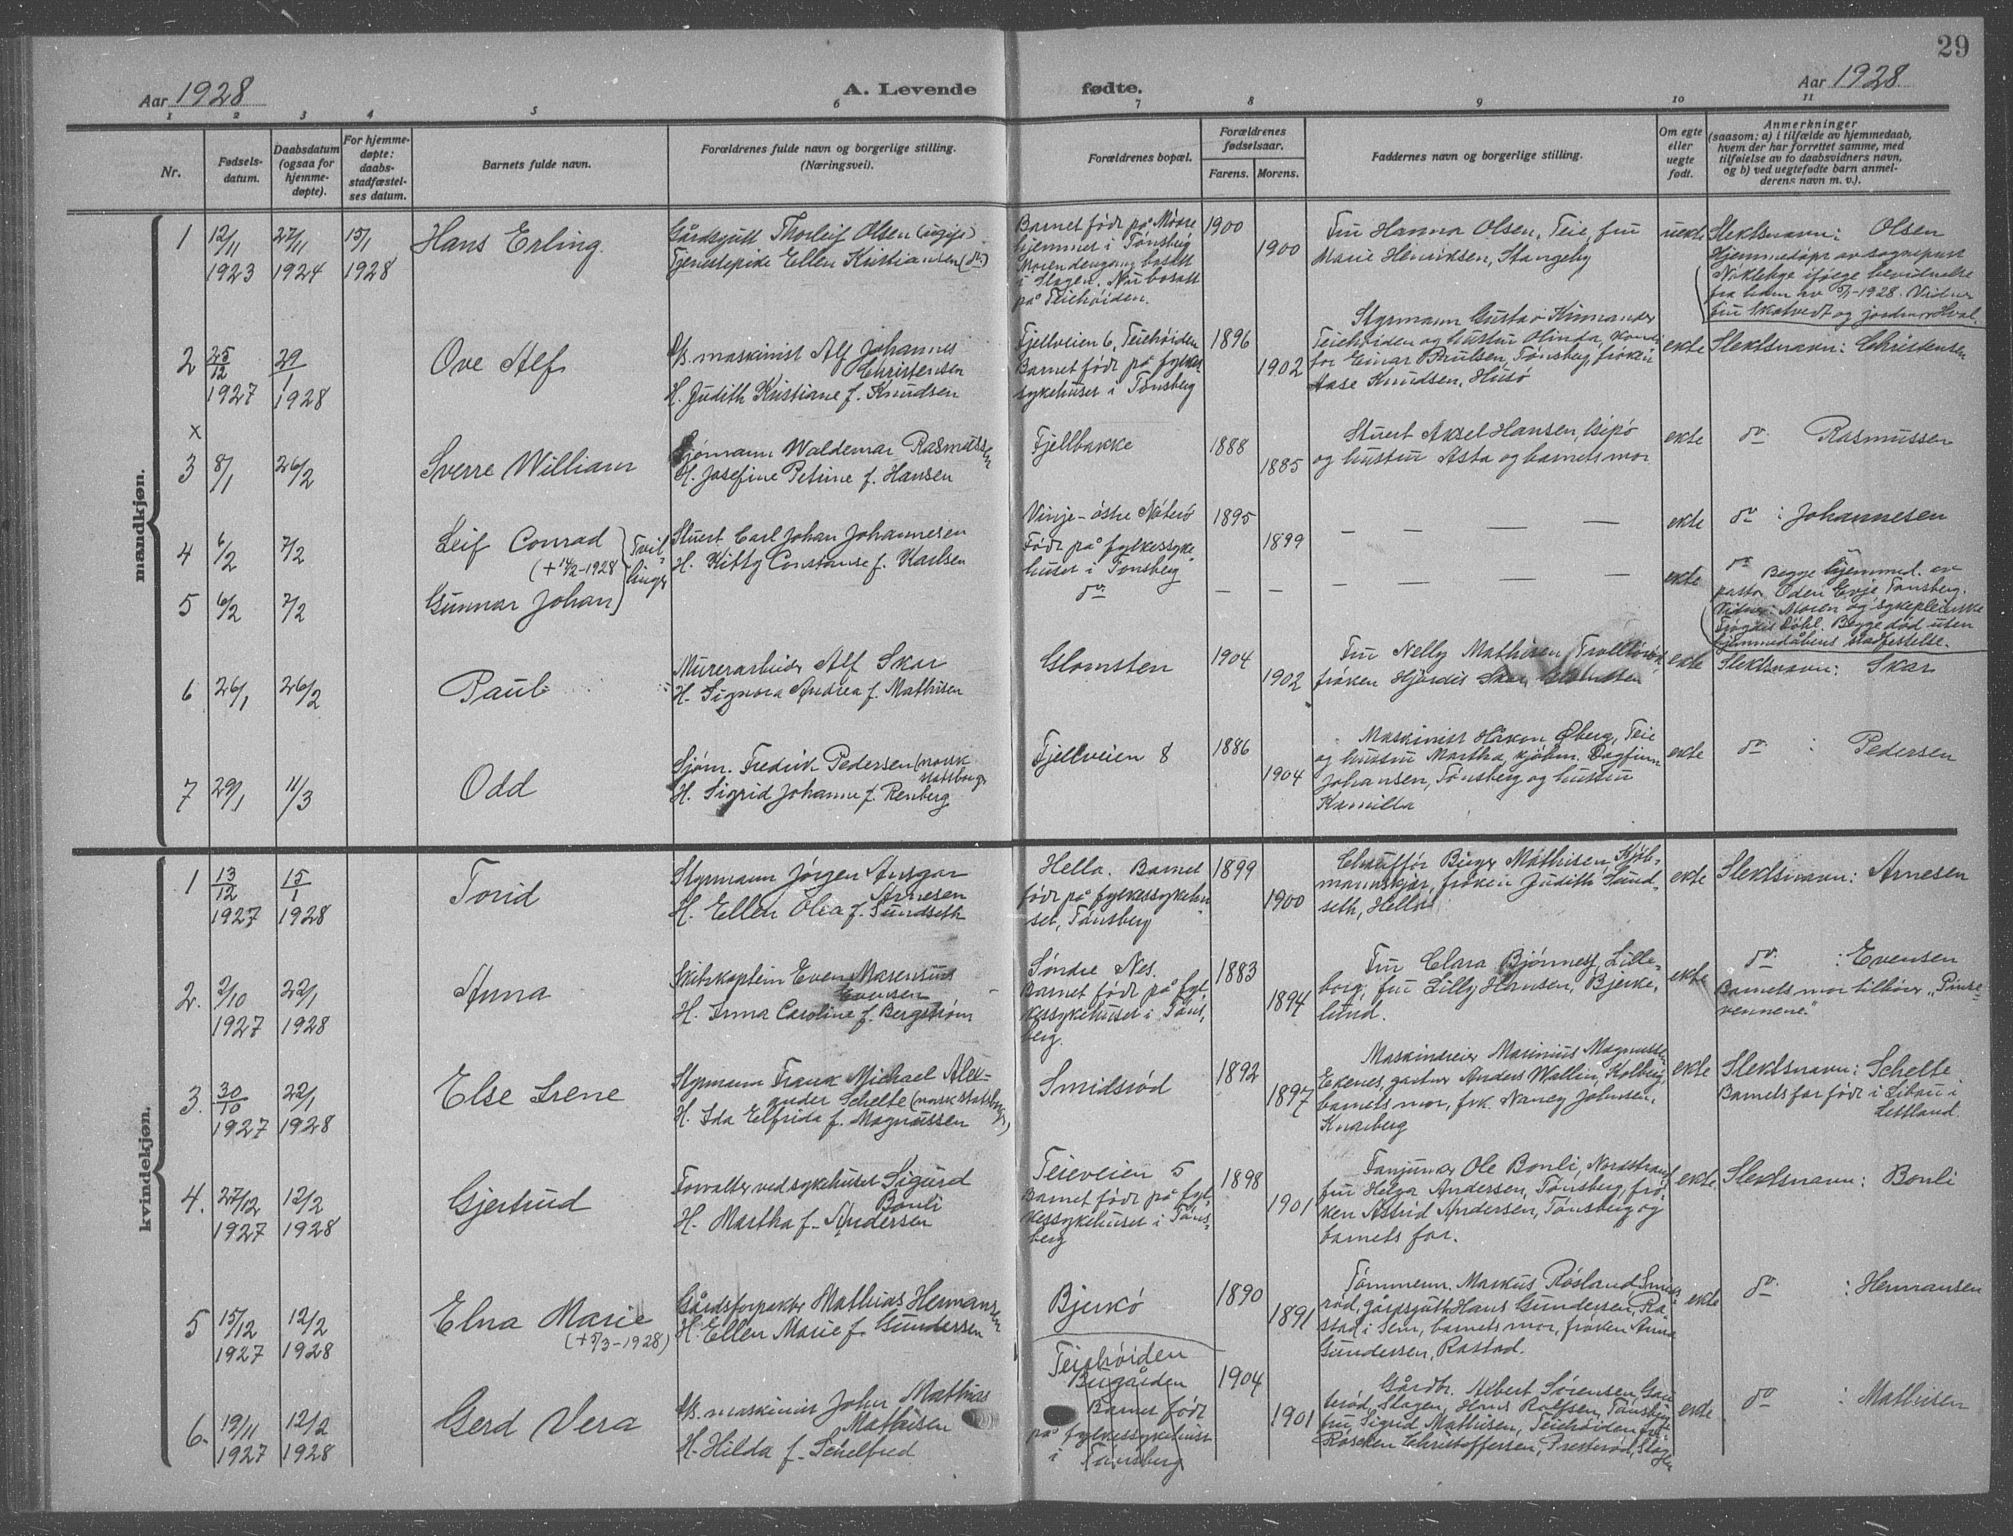 29
Aar 1928
A. Levende fødte.
Aar 1928
1 2 3 4 5 6 7 8 9 10 11
Nr.
Fødsels-
datum.
Daabsdatum
(ogsaa for
hjemme-
døpte).
For hjemme-
døpte:
daabs-
stadfæstel-
ses datum.
Barnets fulde navn.
Forældrenes fulde navn og borgerlige stilling.
(Næringsvei).
Forældrenes bopæl.
Forældrenes
fødselsaar.
Farens. Morens.
Faddernes navn og borgerlige stilling.
Om egte
eller
uegte
født.
Anmerkninger
(saasom: a) i tilfælde av hjemmedaab,
hvem der har forrettet samme, med
tilføielse av to daabsvidners navn,
og b) ved uegtefødte barn anmel-
derens navn m. v.).
mandkjøn.
1
12/11
1923
27/11
1924
15/1
1928
Hans Erling
Gårdsgutt Thorleif Olsen (ugift)
Tjenestepike Ellen Kristiansen (do)
Barnet født på Mødre
hjemmet i Tønsberg
Moren dengang bosatt
i Slagen. Nu bosatt
på Teiehøiden.
1900
1900
Fru Hanna Olsen, Teie, fru
Marie Henriksen, Stangeby
uekte
Slektsnavn: Olsen
Hjemmedøpt av sogneprest
Nøkleby ifølge bevidnelse
fra ham av 5/1-1928. Vidner
fru Skatvedt og jordmor Hval.
2
25/12
1927
29/1
1928
Ove Alf
maskinist Alf Johannes
Christensen
H. Judith Kristiane f. Knudsen
Fjellveien 6, Teiehøiden
Barnet født på fylkes
sykehuset i Tønsberg
1896
1902
Styrmann Gustav Kinnander
Teiehøiden og hustru Olinda,
Einar Paulsen, Tønsberg, frøken
Aase Knudsen, Husø
ekte
Slektsnavn: Christensen
x
3
8/1
26/2
Sverre William
Sjømann Waldemar Rasmussen
H. Josefine Petrine f. Hansen
Fjellbakke
1888
1885
Stuert Aksel Hansen,
og hustru Asta og barnets mor
ekte
do Rasmussen
4
6/2
7/2
Leif Conrad
(+ 14/2-1928
Tvil-
linger
Stuert Carl Johan Johannesen
H. Kitty Constanse f. Karlsen
Vinje - østre Nøterø
Født på fylkessyke
huset i Tønsberg
1895
1899
— — — —
ekte
do : Johannesen
5
6/2
7/2
Gunnar Johan
do
— —
— — — —
ekte
do Begge hjemmed. av
pastor Oden Evje, Tønsberg.
Vidner: Moren og sykepleierske
Frøydis Dohl. Begge død uten
hjemmedåbens stadfestelse.
6
26/1
26/2
Paul
Murerarbeider Alf Skar
H. Signora Andrea f. Mathisen
Glomsten
1904
1902
Fru Nelly Mathisen, Trollvik,
frøken Hjørdis Skar, Glomsten
ekte
Slektsnavn: Skar
7
29/1
11/3
Odd
Sjøm. Fredrik Pedersen (norsk
statsborger
H. Sigrid Johanne f. Renberg
Fjellveien 8
1886
1904
Maskinist Håkon Øberg, Teie
og hustru Martha, kjøbm. Dagfinn
Johansen, Tønsberg og hustru
Kamilla
ekte
do : Pedersen
kvindekjøn.
1
13/12
1927
15/1
1928
Torid
Styrmann Jørgen Ansgar
Arnesen
H. Ellen Olea f. Sundseth
Hella. Barnet
født på fylkessykehu-
set, Tønsberg
1899
1900
Chauffør Birger Mathisen, Kjøb-
mannskjær, frøken Judith Sund-
seth, Hella
ekte
Slektsnavn: Arnesen
2.
2/10
1927
22/1
1928
Anna
Skibskaptein Even Marensius
Evensen
H. Anna Caroline f. Bergstrøm
Søndre Nes.
Barnet født på fyl-
kessykehuset i Tøns-
berg.
1883
1894
Fru Clara Bjønnes, Lille-
borg, fru Lilly Hansen, Bjerke-
lund.
ekte
do : Evensen
Barnets mor tilhører "Pinse-
vennene."
3.
30/10
1927
22/1
1928
Else Irene
Styrmann Frank Michael Alex-
ander Schelte (norsk statsborger)
H. Ida Elfrida f. Magnussen
Smidsrød
1892
1897
Maskinreier Marinius Magnussen
Ekenes, gartner Anders Wallin, Kolberg
barnets mor, frk. Nancy Johnsen,
Knarberg
ekte
Slektsnavn: Schelte
Barnets far født i Libau i
Lettland.
4.
27/12
1927
12/2
1928
Gjertrud
Forvalter ved sykehuset Sigurd
Bonli
H. Martha f. Andersen
Teieveien 5
Barnet født på fyl-
kessykehuset i Tøns-
berg
1898
1901
Fanjunker Ole Bonli, Nordstrand
fru Helga Andersen, Tønsberg, frø-
ken Astrid Andersen, Tønsberg og
barnets far.
ekte
Slektsnavn: Bonli
5
15/12
1927
12/2
1928
Elna Marie
(+ 5/3-1928)
Gårdsforpakter Mathias Hermansen
H. Ellen Marie f. Gundersen
Bjerkø
1890
1891
Tømmerm. Markus Røsland, Smids-
rød, gårdsgutt Hans Gundersen, Ra-
stad i Sem, barnets mor, frøken Anna
Gundersen, Rastad.
ekte
do : Hermansen
6.
19/11
1927
12/2
1928
Gerd Vera
maskinist John Mathias
Mathisen
H. Hilda f. Schelfred
Teiehøiden
Birgården
Barnet født
på fylkessykehuset
i Tønsberg
1904
1901
Gårdbr. Albert Sørensen,
Slagen, Hans Rolfsen, Tønsberg
fru Sigrid Mathisen, Teiehøiden,
Christoffersen, Presterød, Slagen
ekte
do : Mathisen